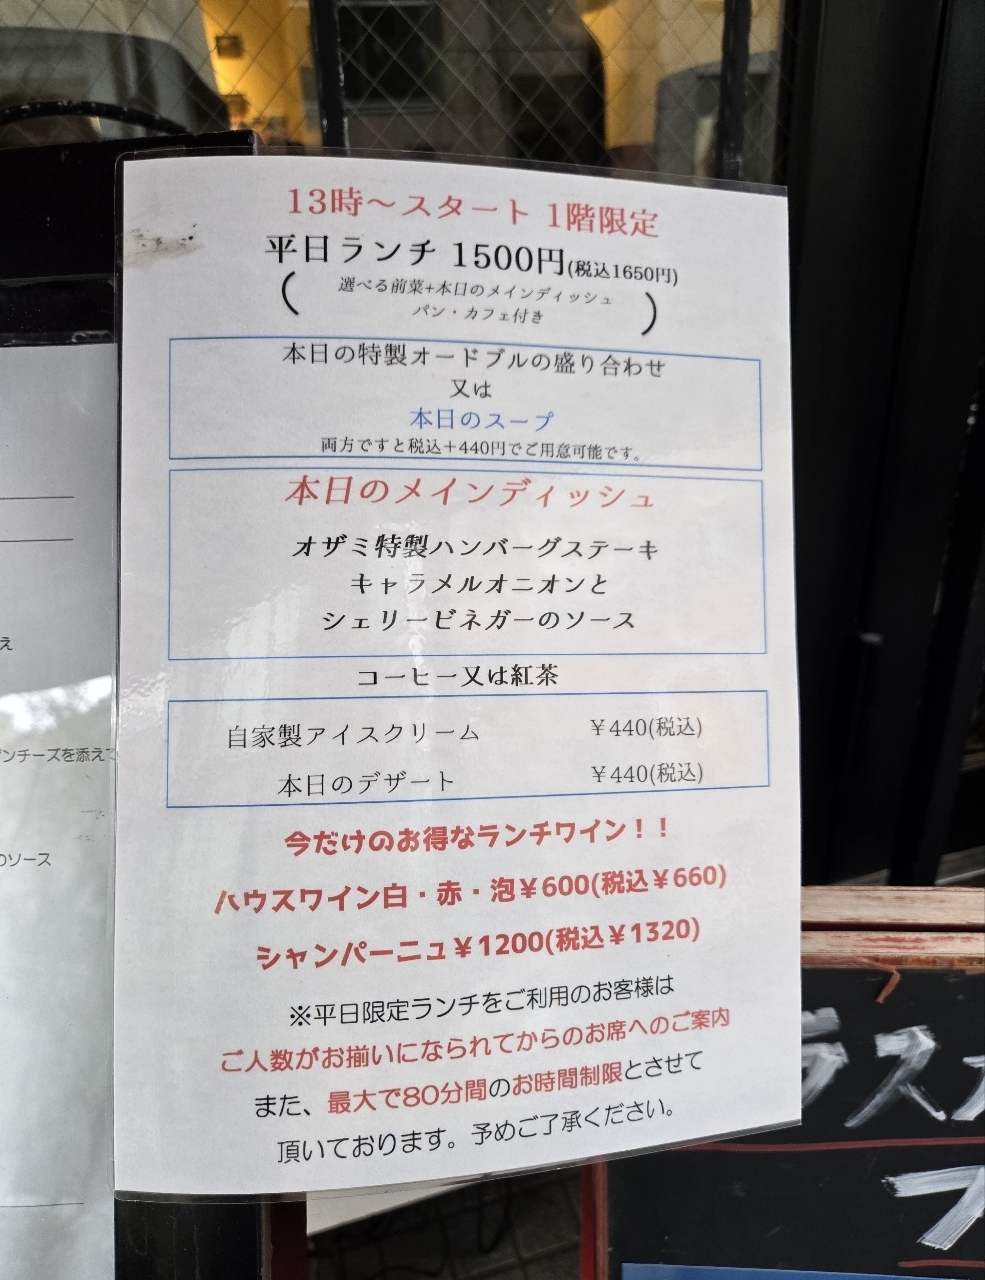 13時～スタート 1階限定
平日ランチ 1500円(税込1650円)
(選べる前菜+本日のメインディッシュ
パン・カフェ付き)
本日の特製オードブルの盛り合わせ
又は
本日のスープ
両方ですと税込＋440円でご用意可能です。
本日のメインディッシュ
オザミ特製ハンバーグステーキ
キャラメルオニオンと
シェリービネガーのソース
コーヒー又は紅茶
自家製アイスクリーム ￥440(税込)
本日のデザート ￥440(税込)
今だけのお得なランチワイン！！
ハウスワイン白・赤・泡￥600(税込￥660)
シャンパーニュ￥1200(税込￥1320)
※平日限定ランチをご利用のお客様は
ご人数がお揃いになられてからのお席へのご案内
また、最大で80分間のお時間制限とさせて
頂いております。予めご了承ください。
え
ンチーズを添えて
のソース
ラス
フ